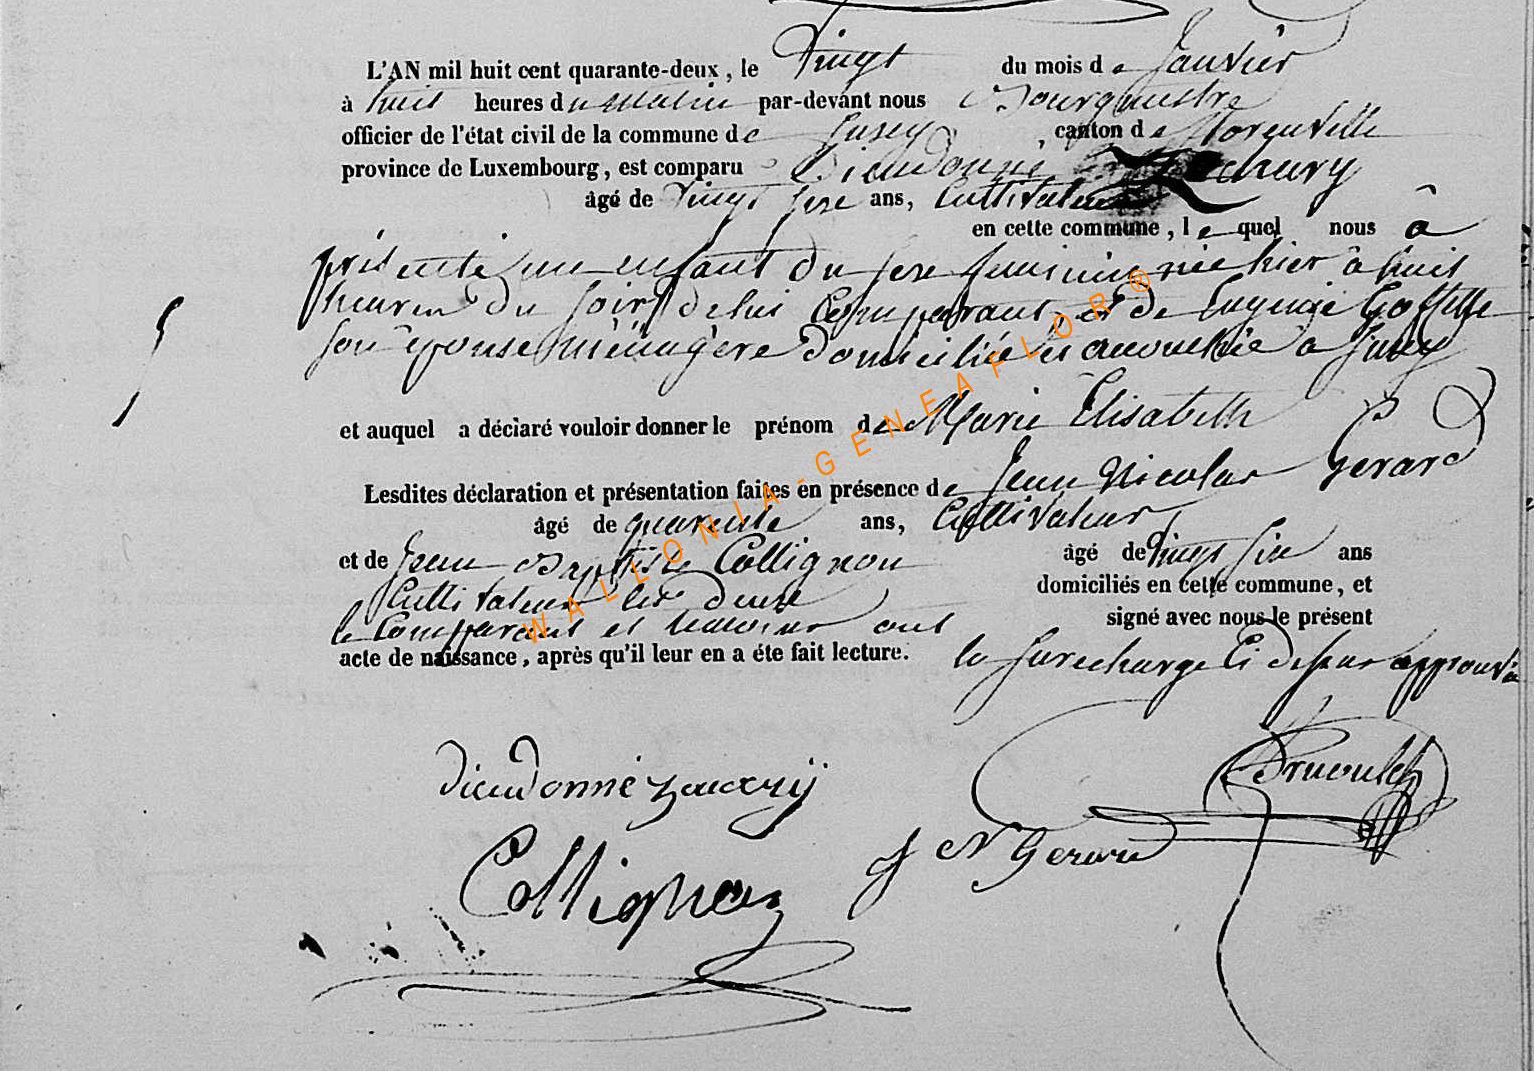 L'AN mil huit cent quarante-deux, le Vingt du mois de Janvier
à huit heures du matin par-devant nous Bourgmestre
officier de l'état civil de la commune de Jusey canton de
province de Luxembourg, est comparu Dieudonné Zachary
âgé de Vingt sere ans, Cultivateur
en cette commune, le quel nous â
présenté un enfant du sexe feminin née hier à huit
heures du soir de lui Comparant, et de Eugenie Goffette
son épouse ménagère domiciliée et accouchée à Jusey
et auquel a déclaré vouloir donner le prénom de Marie Elisabeth
Lesdites déclaration et présentation faites en présence de Jean Nicolas Gerard
âgé de quarente ans, Cultivateur
et de Jean Baptiste Collignon âgé de vingt six ans
Cultivateur les deux domiciliés en cette commune, et
le Comparant et temoins ont signé avec nous le présent
acte de naissance, après qu'il leur en a éte fait lecture. la surecharge Ci dessus approuvée
Dieudonné zacary
J N Gerard
Collignon
WALLONIA-GENEAFLOR®